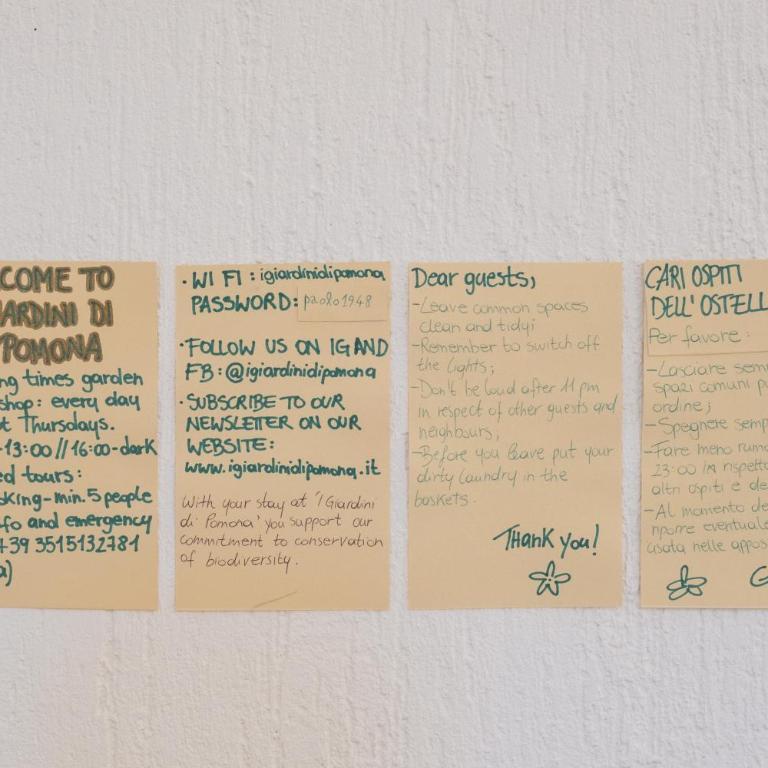 COME TO
IARDINI DI
POMONA
ng times garden
shop: every day
t Thursdays.
-13:00 // 16:00-dark
ed tours:
oking-min. 5 people
fo and emergency
+39 3515132781
a)
· WI FI : igiardinidipomona
PASSWORD: paolo1948
· FOLLOW US ON IG AND
FB: @igiardinidipomona
· SUBSCRIBE TO OUR
NEWSLETTER ON OUR
WEBSITE:
www.igiardinidipomona.it
With your stay at 'I Giardini
di Pomona' you support our
commitment to conservation
of biodiversity.
Dear guests,
-Leave common spaces
clean and tidy;
-Remember to switch off
the lights;
-Don't be loud after 11 pm
in respect of other guests and
neighbours;
-Before you leave put your
dirty laundry in the
baskets.
Thank you!
CARI OSPITI
DELL' OSTELL
Per favore:
-Lasciare sem
spazi comuni pu
ordine;
-Spegnere semp
-Fare meno rumo
23:00 in rispetto
altri ospiti e de
-Al momento de
riporre eventuale
usata nelle appos
G